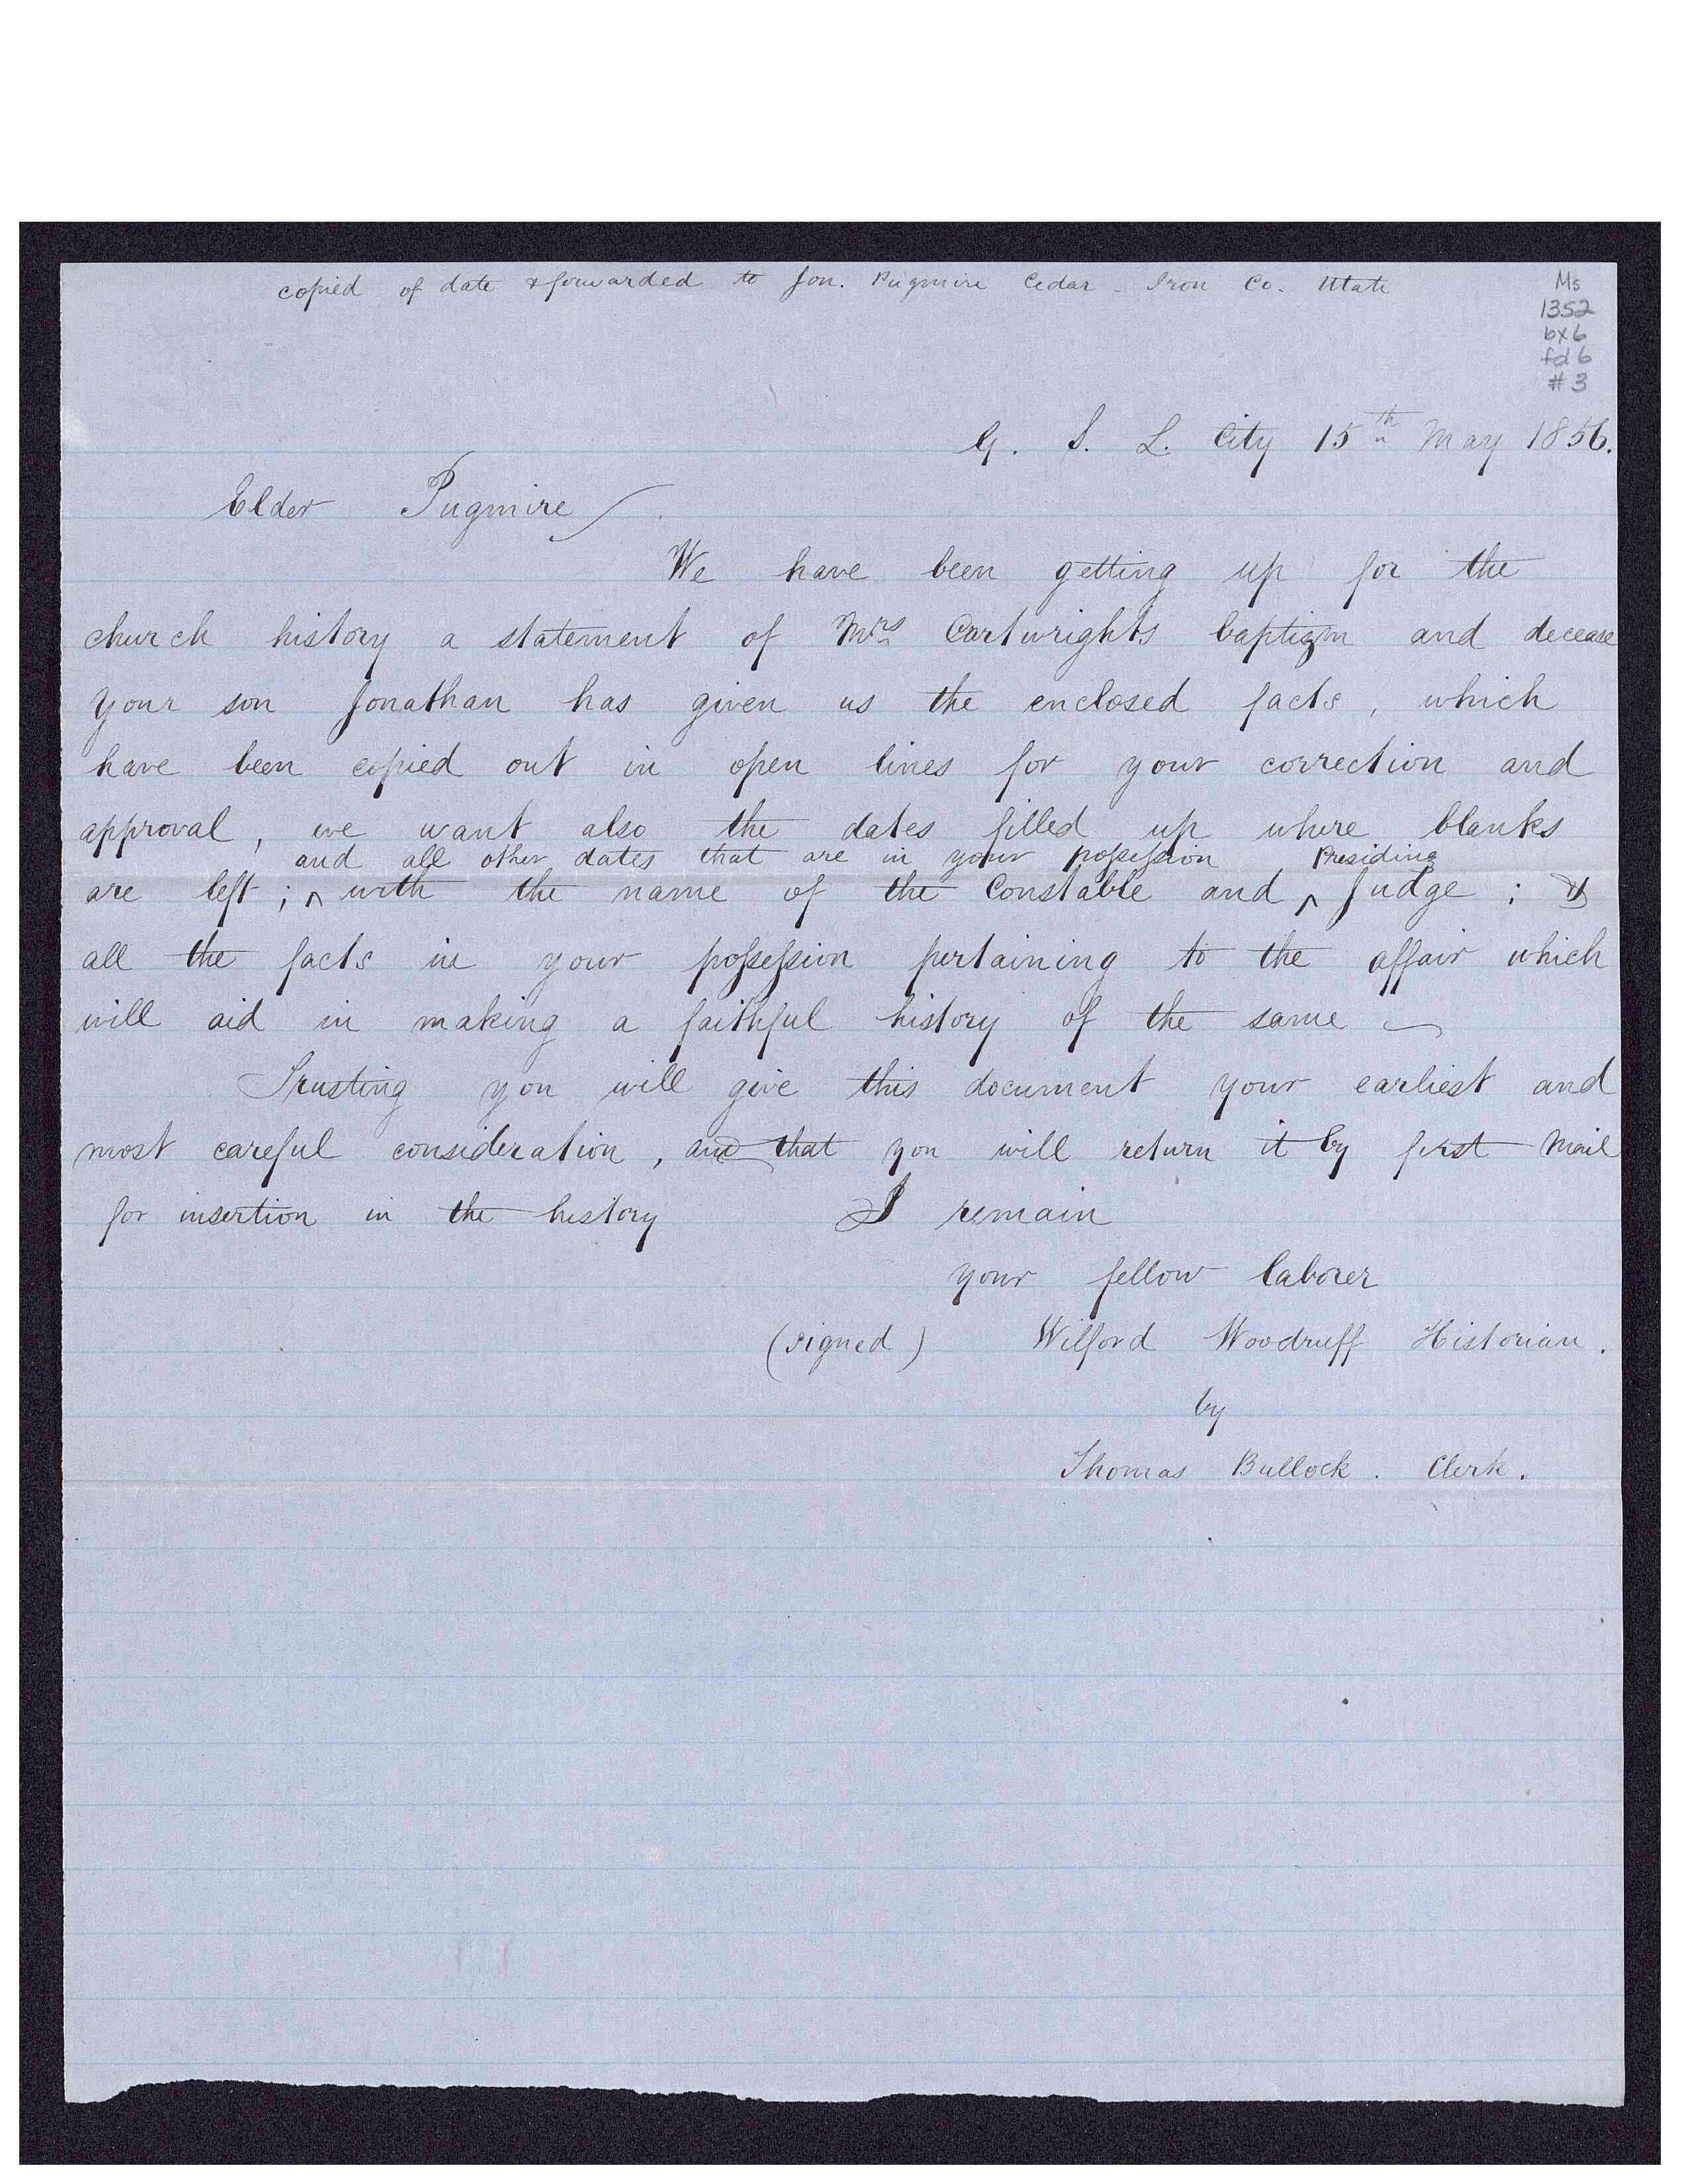 copied of date & forwarded to Jon. Pugmire Cedar. Iron Co. Utah
Ms
1352
bx 6
fd 6
# 3
G. S. L. City 15th May 1856.
Elder Pugmire
We have been getting up for the
church history a statement of Mrs Cartwrights baptizm and decease
your son Jonathan has given us the enclosed facts, which
have been copied out in open lines for your correction and
approval, we want also the dates filled up where blanks
and all other dates that are in your possession Presiding
are left; ^ with the name of the Constable and ^ Judge; &
all the facts in your possession pertaining to the affair which
will aid in making a faithful history of the same
Trusting you will give this document your earliest and
most careful consideration, and that you will return it by first Mail
for insertion in the history I remain
your fellow laborer
(signed) Wilford Woodruff Historian.
by
Thomas Bullock. Clerk.